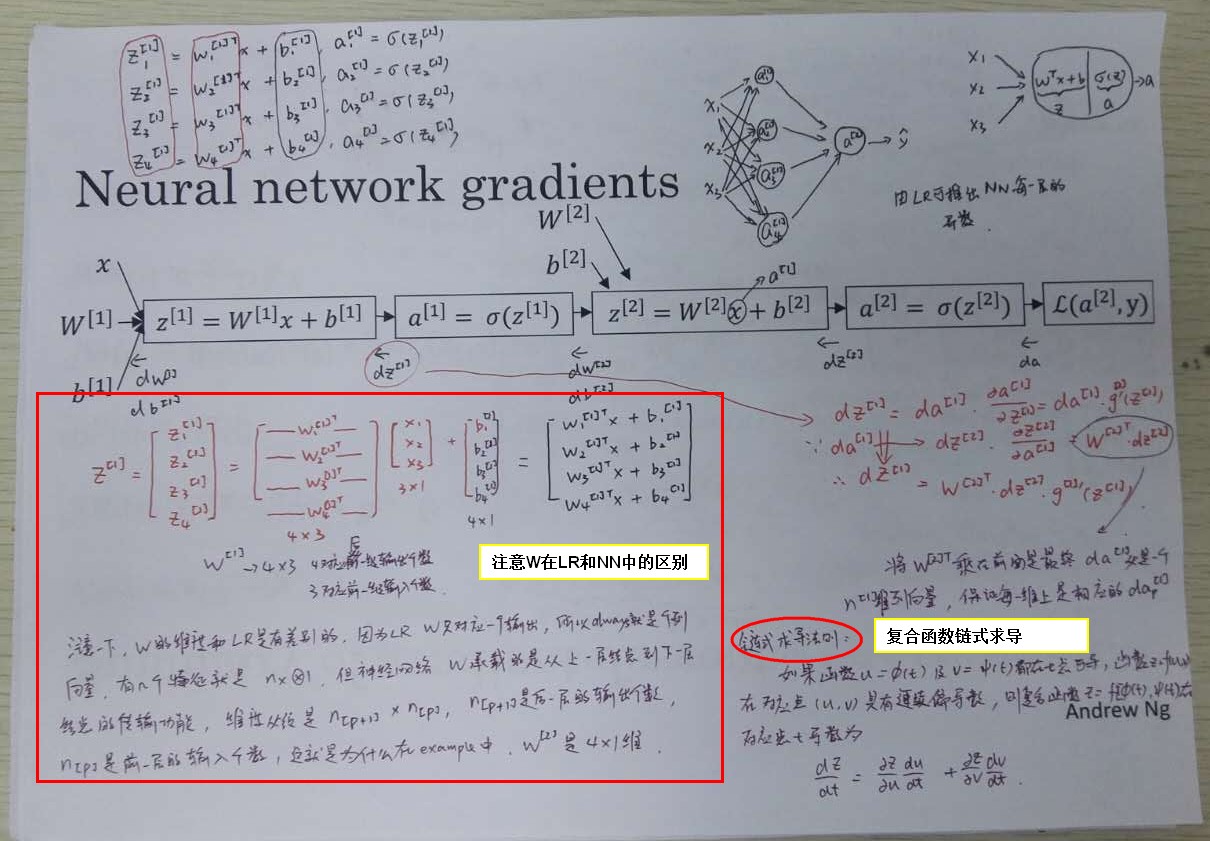 z₁^[1] = w₁^[1]T x + b₁^[1], a₁^[1] = σ(z₁^[1])
z₂^[1] = w₂^[1]T x + b₂^[1], a₂^[1] = σ(z₂^[1])
z₃^[1] = w₃^[1]T x + b₃^[1], a₃^[1] = σ(z₃^[1])
z₄^[1] = w₄^[1]T x + b₄^[1], a₄^[1] = σ(z₄^[1])
x₁
x₂
x₃
a₁^[1]
a₂^[1]
a₃^[1]
a₄^[1]
a^[2] → ŷ
x₁
x₂
x₃
wᵀx+b σ(z) → a
z a
由LR可推出NN每一层的
导数.
Neural network gradients
W^[2]
b^[2]
a^[1]
x
W^[1]
b^[1]
z^[1] = W^[1]x + b^[1]
a^[1] = σ(z^[1])
z^[2] = W^[2]x + b^[2]
a^[2] = σ(z^[2])
ℒ(a^[2], y)
dw^[1]
db^[1]
dz^[1]
dw^[2]
db^[2]
dz^[2]
da
dz^[1] = da^[1] · ∂a^[1]/∂z^[1] = da^[1] · g^[1]'(z^[1])
∵ da^[1] → dz^[2] · ∂z^[2]/∂a^[1] = W^[2]T · dz^[2]
∴ dz^[1] = W^[2]T · dz^[2] · g^[1]'(z^[1])
z^[1] = [z₁^[1] z₂^[1] z₃^[1] z₄^[1]] = [w₁^[1]T w₂^[1]T w₃^[1]T w₄^[1]T] [x₁ x₂ x₃] + [b₁^[1] b₂^[1] b₃^[1] b₄^[1]] = [w₁^[1]T x + b₁^[1] w₂^[1]T x + b₂^[1] w₃^[1]T x + b₃^[1] w₄^[1]T x + b₄^[1]]
4×3
3×1
4×1
W^[1] → 4×3 4对应后一级输出个数
3对应前一级输入个数.
注意W在LR和NN中的区别
注意一下, W的维度和LR是有差别的, 因为LR W只对应一个输出, 所以always就是个列
向量, 有n个特征就是 nx⊗1, 但神经网络 W承载的是从上一层结点到下一层
结点的传输功能, 维度从是 n[p+1] × n[p], n[p+1]是后一层的输出个数,
n[p]是前一层的输入个数, 这就是为什么在example中, W^[2]是4×1维.
将W^[2]T乘在前面是最终da^[1]是一个
n^[1]维列向量, 保证每一维上是相应的da^[1]
链式求导法则:
复合函数链式求导
如果函数u=φ(t)及v=ψ(t)都在t点可导, 函数z=f(u,v)
在对应点(u,v)具有连续偏导数, 则复合函数z=f[φ(t),ψ(t)]在
对应点t导数为
Andrew Ng
dz/dt = ∂z/∂u du/dt + ∂z/∂v dv/dt.